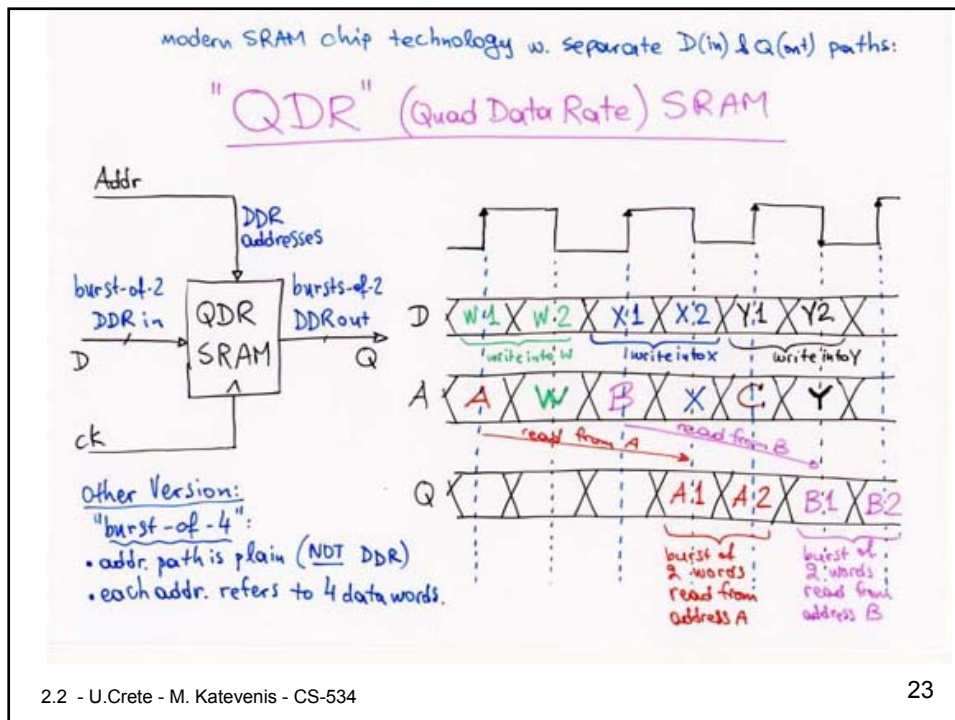 modern SRAM chip technology w. separate D(in) & Q(out) paths:
"QDR" (Quad Data Rate) SRAM
Addr
DDR
addresses
burst-of-2
DDR in
D
QDR
SRAM
bursts-of-2
DDR out
Q
ck
Other Version:
"burst-of-4":
• addr. path is plain (NOT DDR)
• each addr. refers to 4 data words.
D W.1 W.2 X.1 X.2 Y.1 Y2
write into W write into X write into Y
A A W B X C Y
read from A read from B
Q A.1 A.2 B.1 B.2
burst of
2 words
read from
address A
burst of
2 words
read from
address B
2.2 - U.Crete - M. Katevenis - CS-534
23